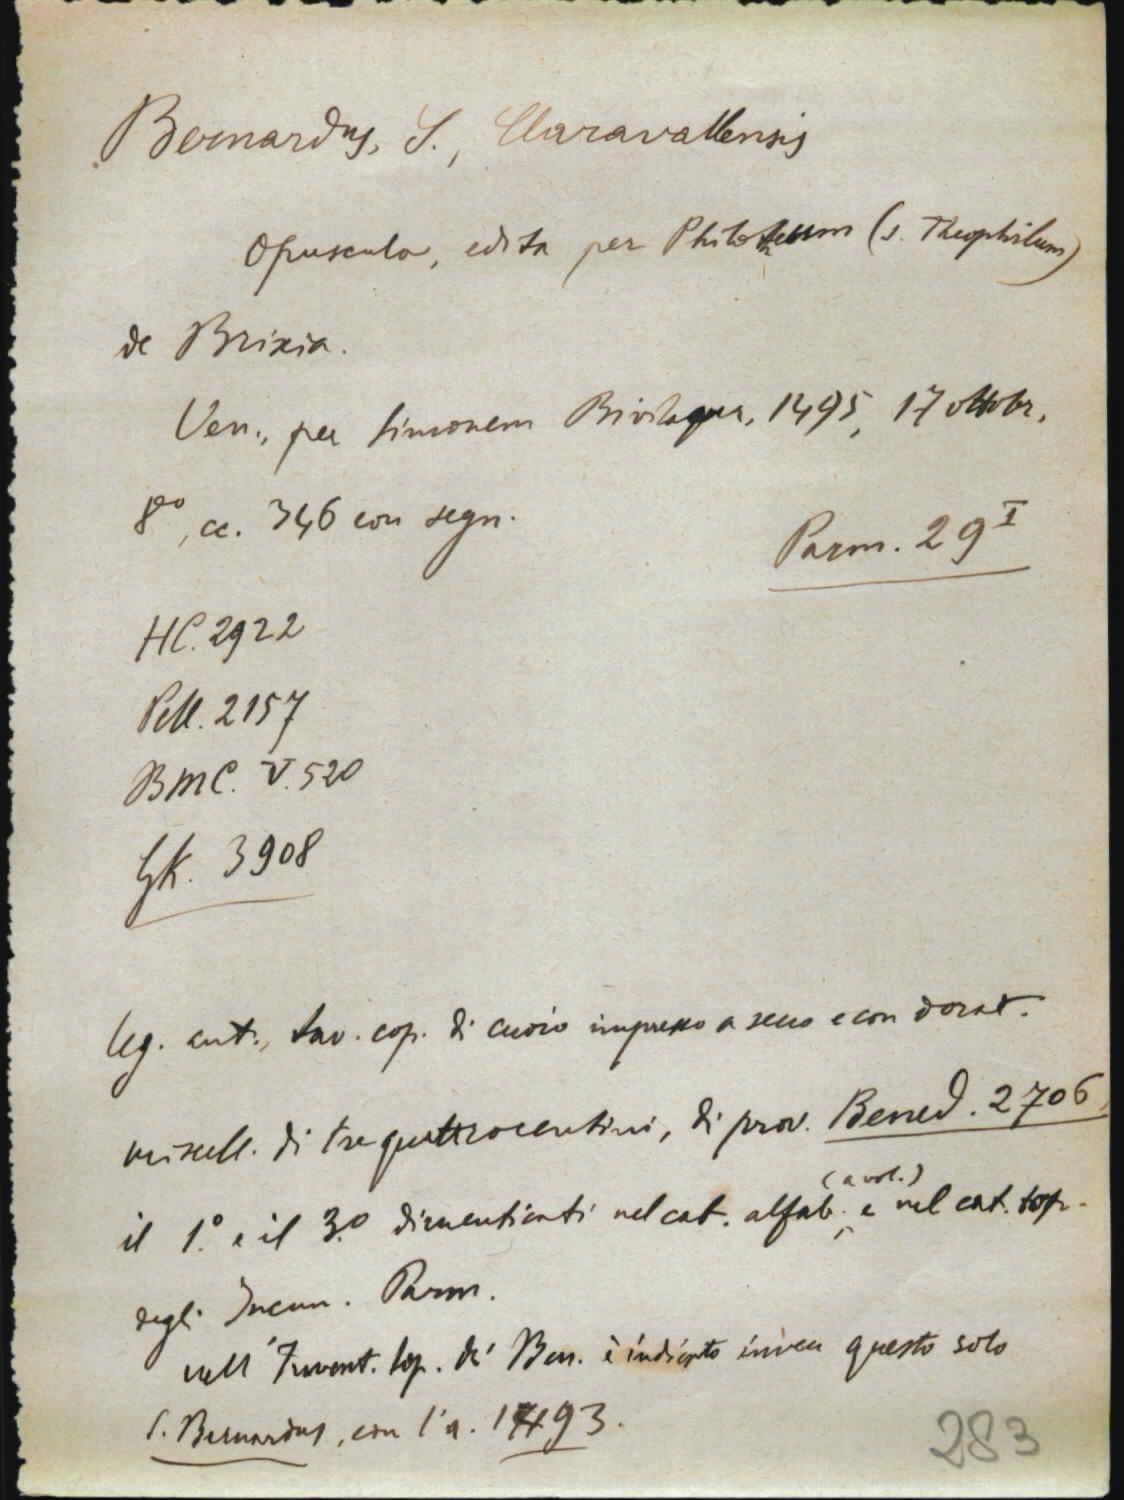 Bernardus, S., Claravallensis
Opuscula, edita per Philotheum (s. Theophilum)
de Brixia.
Ven., per Simonem Bivilaqua, 1495, 17 ottobr.
8°, cc. 346 con segn.
Parm. 29 I
HC. 2922
Pell. 2157
BMC. V. 520
GK. 3908
leg. ant., tav. cop. di cuoio impresso a secco e con dorat.
miscell. di tre quattrocentini, di prov. Bened. 2706
(a vol.)
il 1.° e il 3.° dimenticati nel cat. alfab. e nel cat. top.
degli Incun. Parm.
nell'Invent. top. de' Ben. è indicato invece questo solo
S. Bernardus, con l'a. 1493.
283